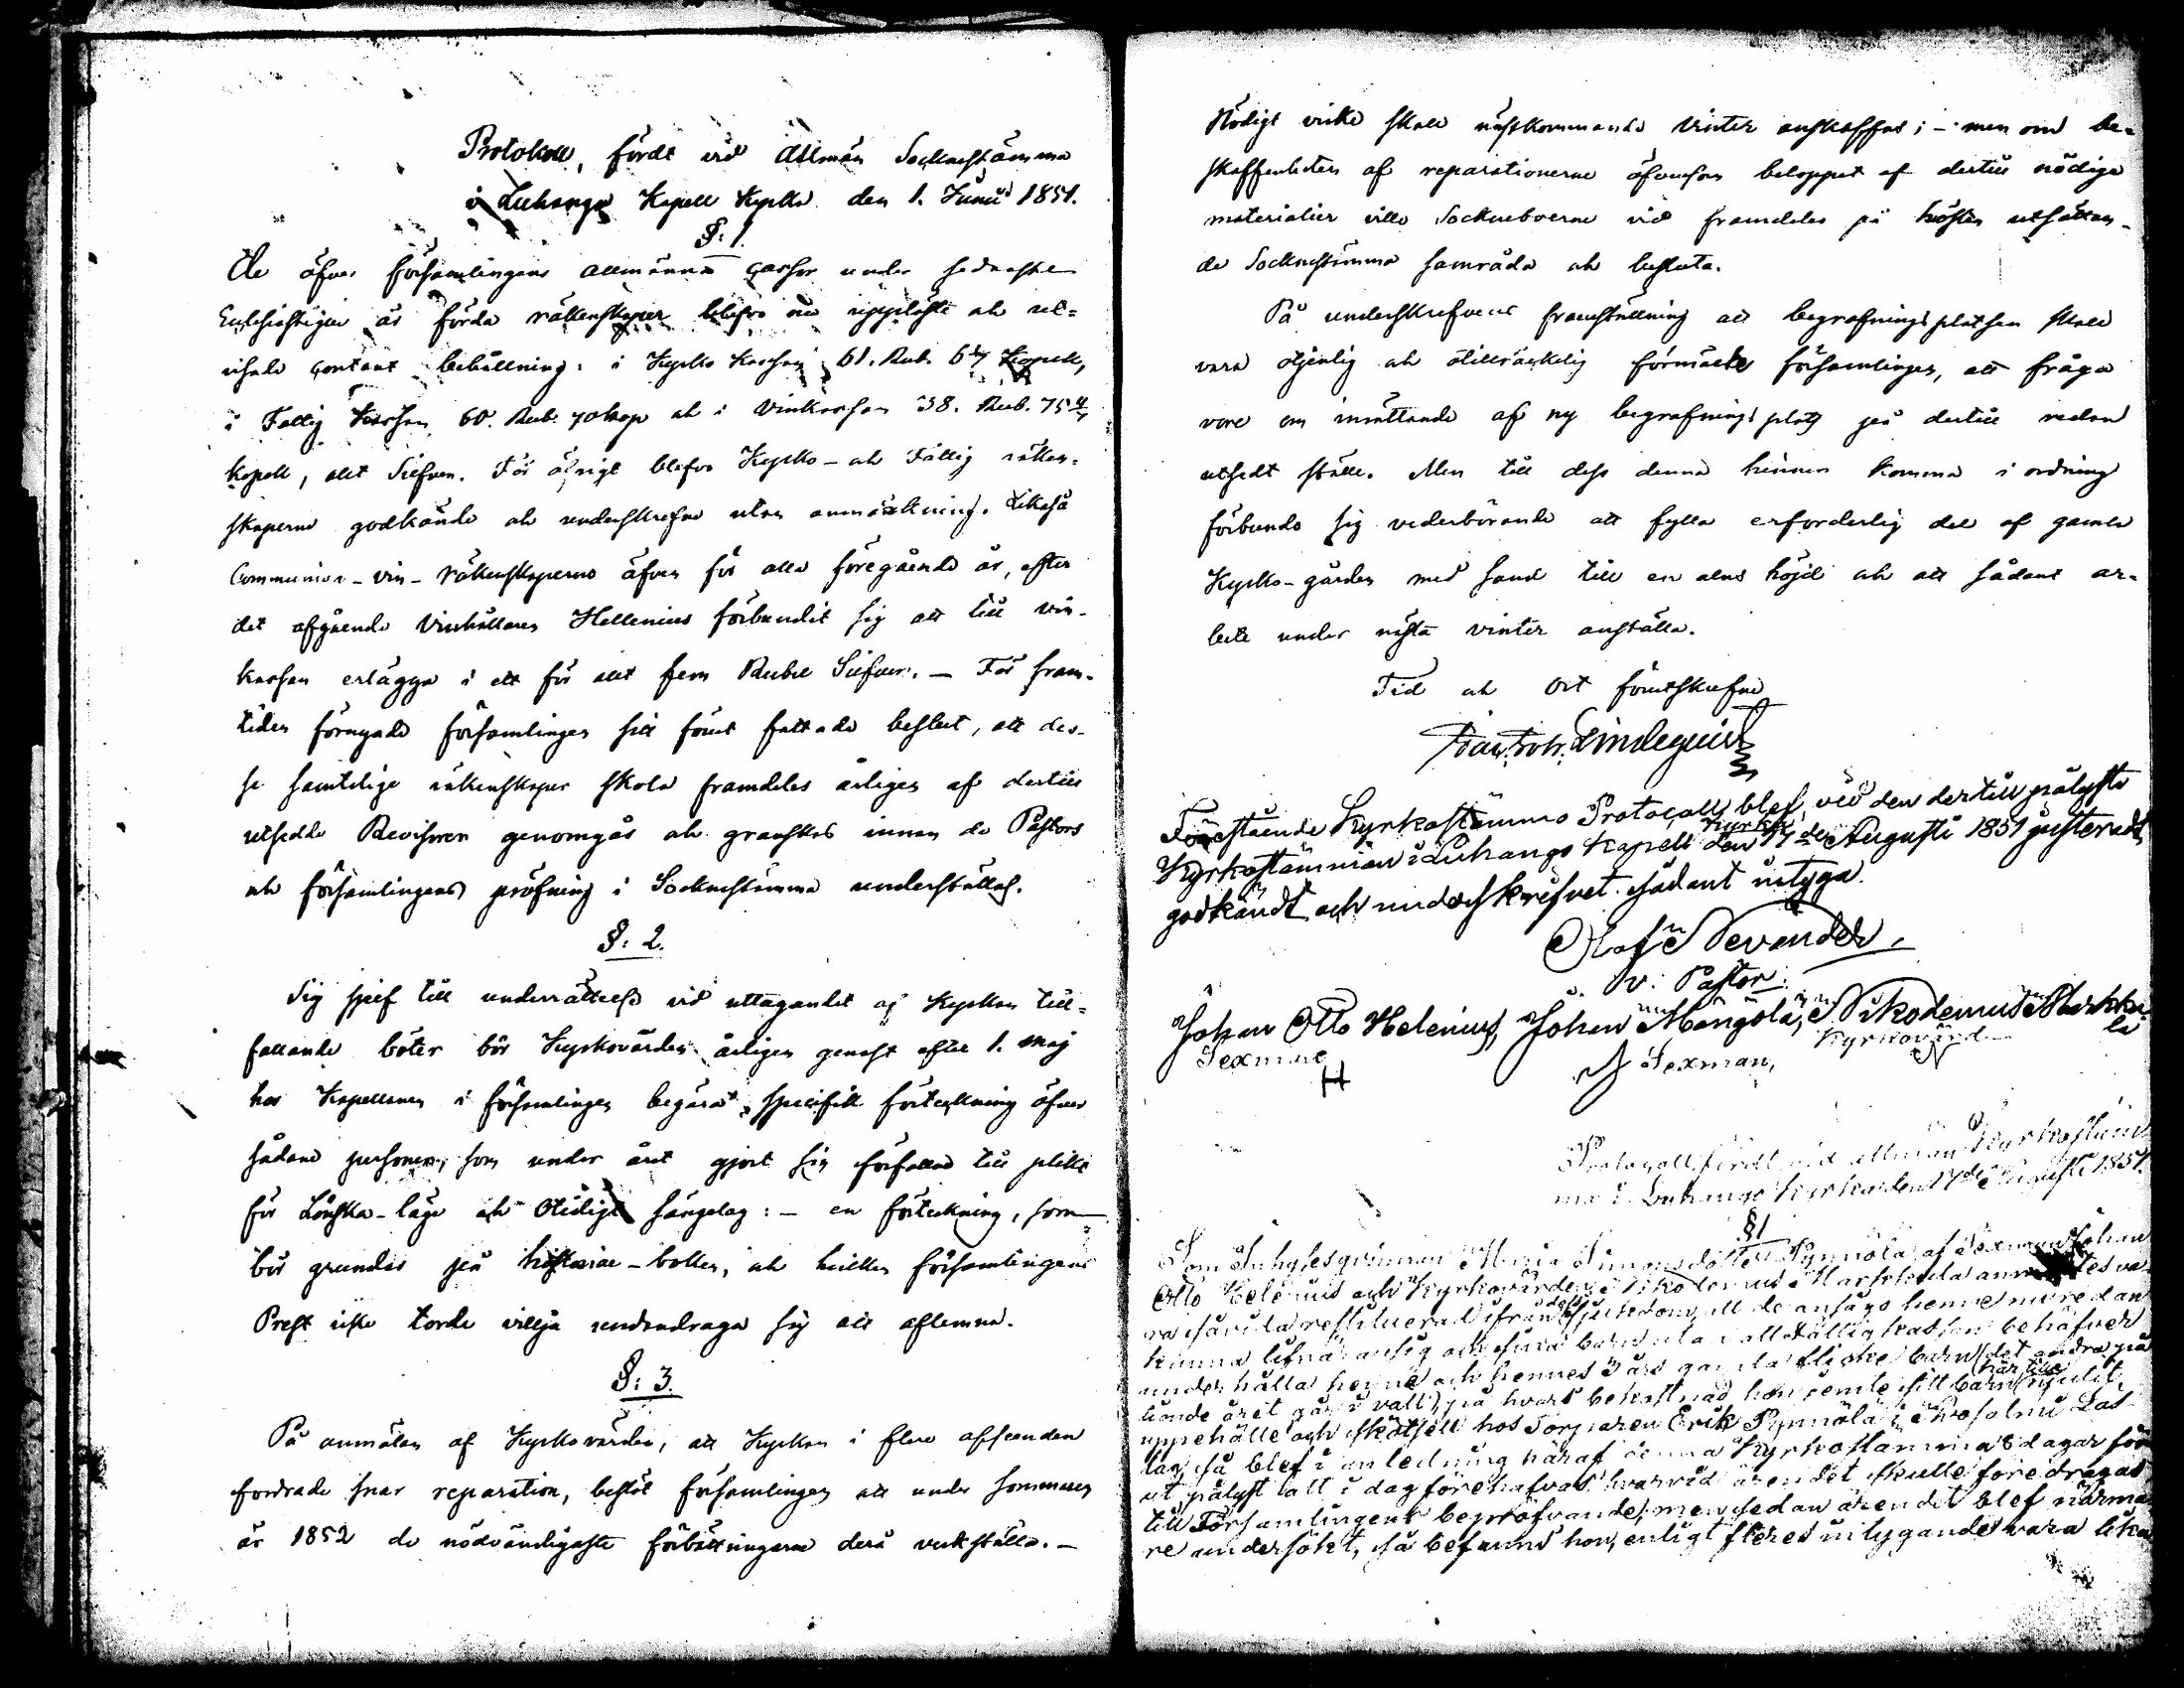 Protokoll, fördt vid Allmän Socknestämma
i Luhango Kapell Kyrka den 1. Junii 1851.
§: 1.
De öfver församlingens allmänna Cassor under sednaste
Ecclesiastique år förda räkenskaper blefvo nu uppläste och ut=
visade contant behållning: i Kyrko Kassan 61. Rub. 6 4/7 Kopek,
i Fattig Kassan 60. Rub. 70 kop och i Vinkassan 38. Rub. 75 4/7
Kopek, allt Silfver. För öfrigt blefvo Kyrko- och Fattig räken-
skaperne godkände och underskrefne utan anmärkning. Likaså
Communion-vin-Räkenskaperne äfven för alla föregående år, efter
det afgående Vinhållaren Hellenius förbundit sig att till vin-
kassan erlägga i ett för allt fem Rubel Silfver. — För fram-
tiden förnyade församlingen sitt förut fattade beslut, att des-
se samtelige räkenskaper skola framdeles årligen af dertill
utsedde Revisorer genomgås och granskas innan de Pastors
och församlingens pröfning i Socknestämma underställas.
§: 2.
Sig sjelf till underrättelse vid uttagandet af Kyrkan till=
fallande böter bör Kyrkovärden årligen genast efter 1. Maj
hos Kapellanen i församlingen begära specifik förteckning öfver
sådane personer, som under året gjort sig förfallne till plikt
för Lönska-läge och Otidigt sängelag: — en förteckning, som
bör grundas på historiae-boken, och hvilken församlingens
Prest icke torde vilja undandraga sig att aflemna.
§: 3.
På anmälan af Kyrkovärden, att Kyrkan i flere afseenden
fordrade snar reparation, beslöt församlingen att under sommaren
år 1852 de nödvändigaste förbättringarne derå verkställa. —
Nödigt virke skall nästkommande Vinter anskaffas; — men om be-
skaffenheten af reparationerne äfvensom beloppet af dertill nödige
materialier ville Sockneboerne vid framdeles på hösten utsättan-
de Sockne­stämma samråda och besluta.
På underskrefvens framställning att begrafningsplatsen skall
vara otjenlig och otillräckelig förmälte församlingen, att fråga
vore om inrättande af ny begrafnings plats på dertill redan
utsedt ställe. Men till dess denna hinner komma i ordning
förbundo sig vederbörande att fylla erforderlig del af gamla
Kyrko-gården med sand till en alns höjd och att sådant ar-
bete under nästa vinter anställa.
Tid och Ort förutskrefne
Lindequist
Förestående Kyrkostämmo Protocoll blef, vid den dertill pålyste
Kyrkostämman i Luhango Kapell Kyrka den 17de Augusti 1851 justeradt,
godkändt och underskrifvet. sådant intyga.
Olof Nevander,
v: Pastor.
Johan Otto Helenius, Johan Mängölä, Nikodemus Markku-
la
Sexman, Sexman, Kyrkovärd
H
Protocoll fördt vid allmän Kyrkostäm-
ma i Luhango Kyrka den 17de Augusti 1851.
§1
Som Inhyses qvinnan Maria Simonsdotter Pynnölä af Sexman Johan
Otto Helenius och Kyrkovärden Nikodemus Markkula anmältes va-
ra såvida restituerad ifrån dess sjukdom, att de ansågo henne nu redan
kunna lifnära sig och sina barn utan att Fattig kassan behöfver
underhålla henne och hennes 3 års gamla flicke barn (det andra på
tionde året går i vall), på hvars bekostnad hon jemte sitt barn härtills njutit
uppehälle och skötsell hos Torparen Erik Pynnölä i Kivosalmi Las-
tas, så blef i anledning häraf denna Kyrkostämma 8 dagar för-
ut pålyst att i dag förehafvas hvarvid ärendet skulle föredragas
till Församlingens bepröfvande; men sedan ärendet blef närma-
re undersökt, så befanns hon, enligt fleres intygande vara lika